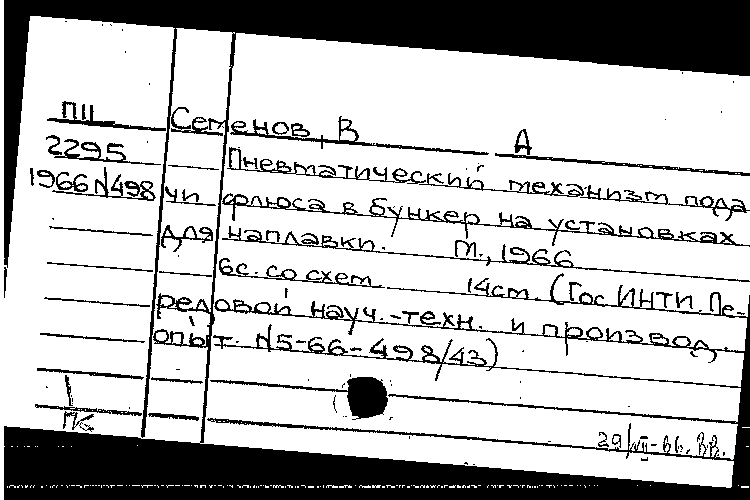 ПШ Семенов, В А
2295 Пневматический механизм пода
1966 N498 чи флюса в бункер на установках
для наплавки. М., 1966
6с. со схем. 14см. (ГосИНТИ. Пе-
редовой науч.-техн. и производ.
опыт. N5-66-498/43)
ПК
29/VII-66. ВВ.